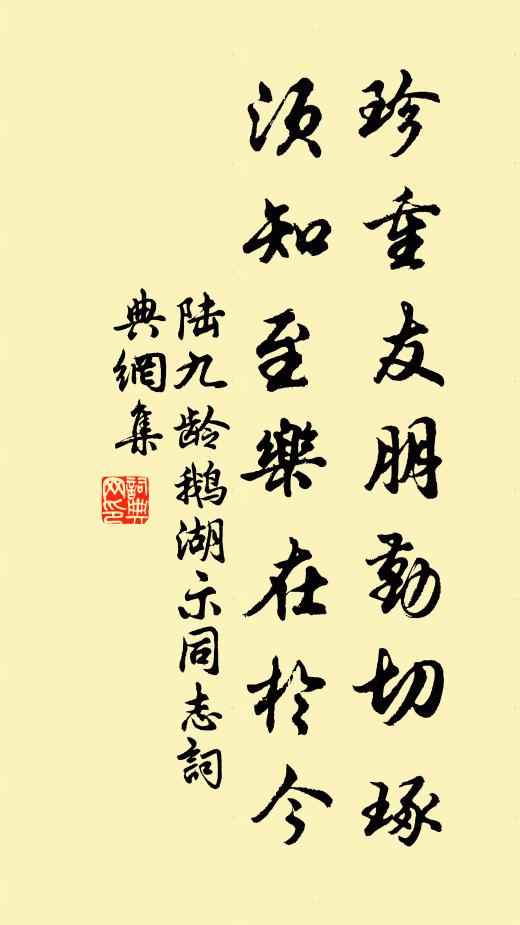 珍重友朋勤切琢
须知至樂在於今
陆九龄鹅湖示同志詞
典網集
詞典网印